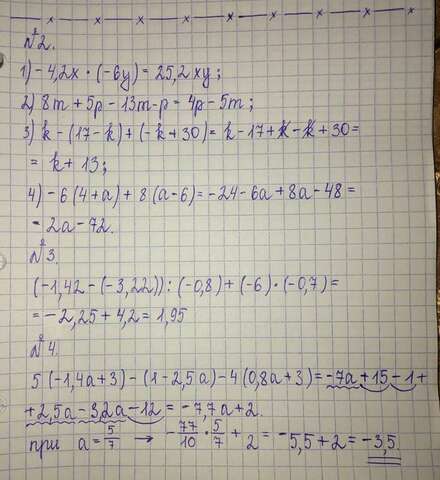 №2.
1) - 4,2x · (-6y) = 25,2xy;
2) 8m + 5p - 13m - p = 4p - 5m;
3) k - (17 - k) + (-k + 30) = k - 17 + k - k + 30 =
= k + 13;
4) - 6 (4 + a) + 8 (a - 6) = -24 - 6a + 8a - 48 =
= 2a - 72.
№3.
(-1,42 - (-3,22)) : (-0,8) + (-6) · (-0,7) =
= -2,25 + 4,2 = 1,95
№4.
5 (-1,4a + 3) - (1 - 2,5a) - 4 (0,8a + 3) = -7a + 15 - 1 +
+ 2,5a - 3,2a - 12 = -7,7a + 2.
при a = 5/7 → - 77/10 · 5/7 + 2 = -5,5 + 2 = -3,5